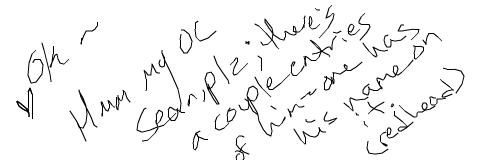 Ok ~
Hum my OC
Sean, plz; there's
a couple entries
of him - one has
his name on
it. (redhead)